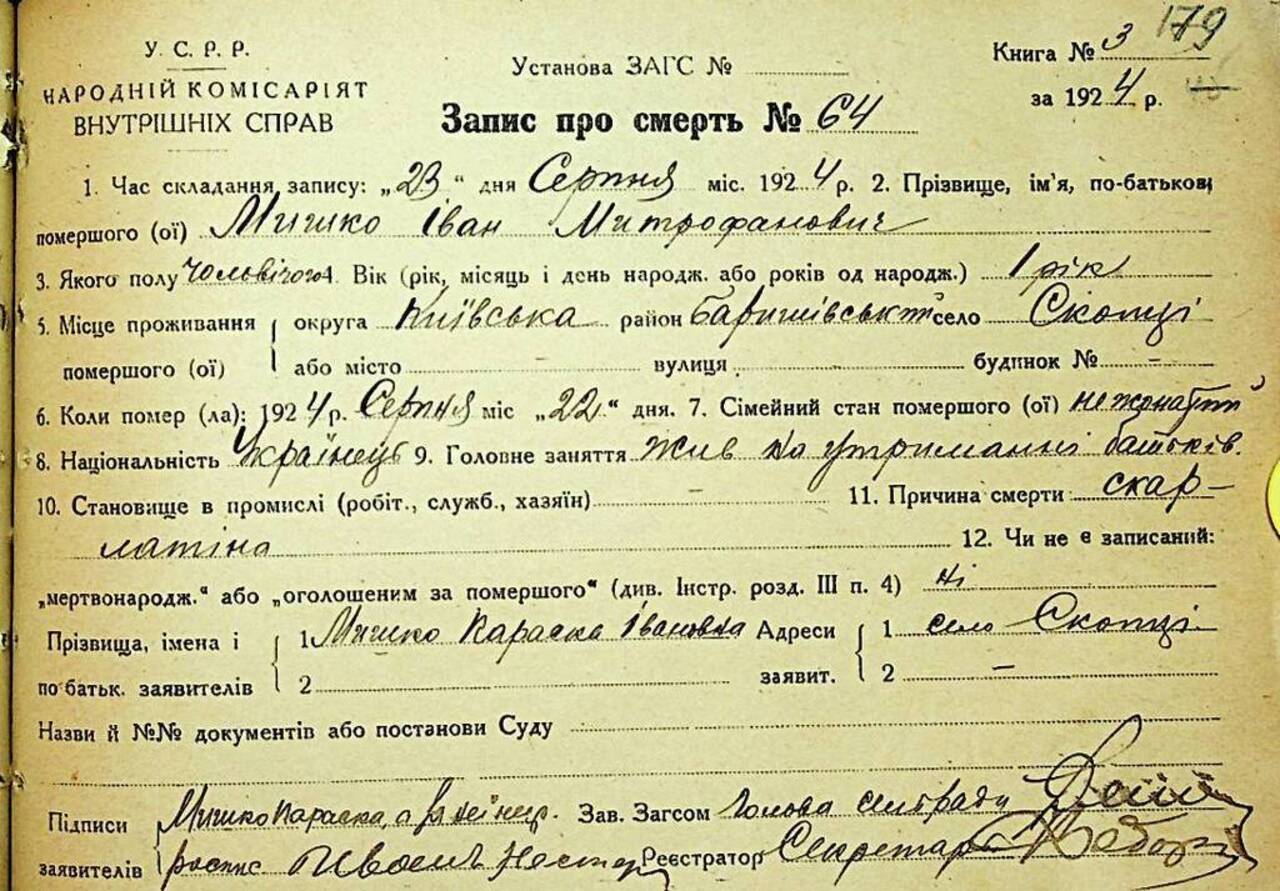 У. С. Р. Р.
НАРОДНІЙ КОМІСАРІЯТ
ВНУТРІШНІХ СПРАВ
Установа ЗАГС №
Книга № 3 179
за 1924 р.
Запис про смерть № 64
1. Час складання запису: „23" дня Серпня міс. 1924 р. 2. Прізвище, ім'я, по-батькові
помершого (ої) Мишко Іван Митрофанович
3. Якого полу Чоловічого 4. Вік (рік, місяць і день народж. або років од народж.) 1 рік
5. Місце проживання округа Київська район Баришівський село Скопці
помершого (ої) або місто - вулиця будинок № -
6. Коли помер (ла): 1924 р. Серпня міс „22" дня. 7. Сімейний стан помершого (ої) не жонатий
8. Національність Українець 9. Головне заняття жив на утриманні батьків.
10. Становище в промислі (робіт., служб., хазяїн) - 11. Причина смерти: скар-
латіна 12. Чи не є записаний:
„мертвонародж." або „оголошеним за помершого" (див. Інстр. розд. III п. 4) ні
Прізвища, імена і 1 Мишко Параска Івановна Адреси 1 село Скопці.
по батьк. заявителів 2 заявит. 2 -
Назви й №№ документів або постанови Суду
Підписи Мишко Параска, а за Зав. Загсом Голова сільради
заявителів роспис Нестер Реєстратор Секретар